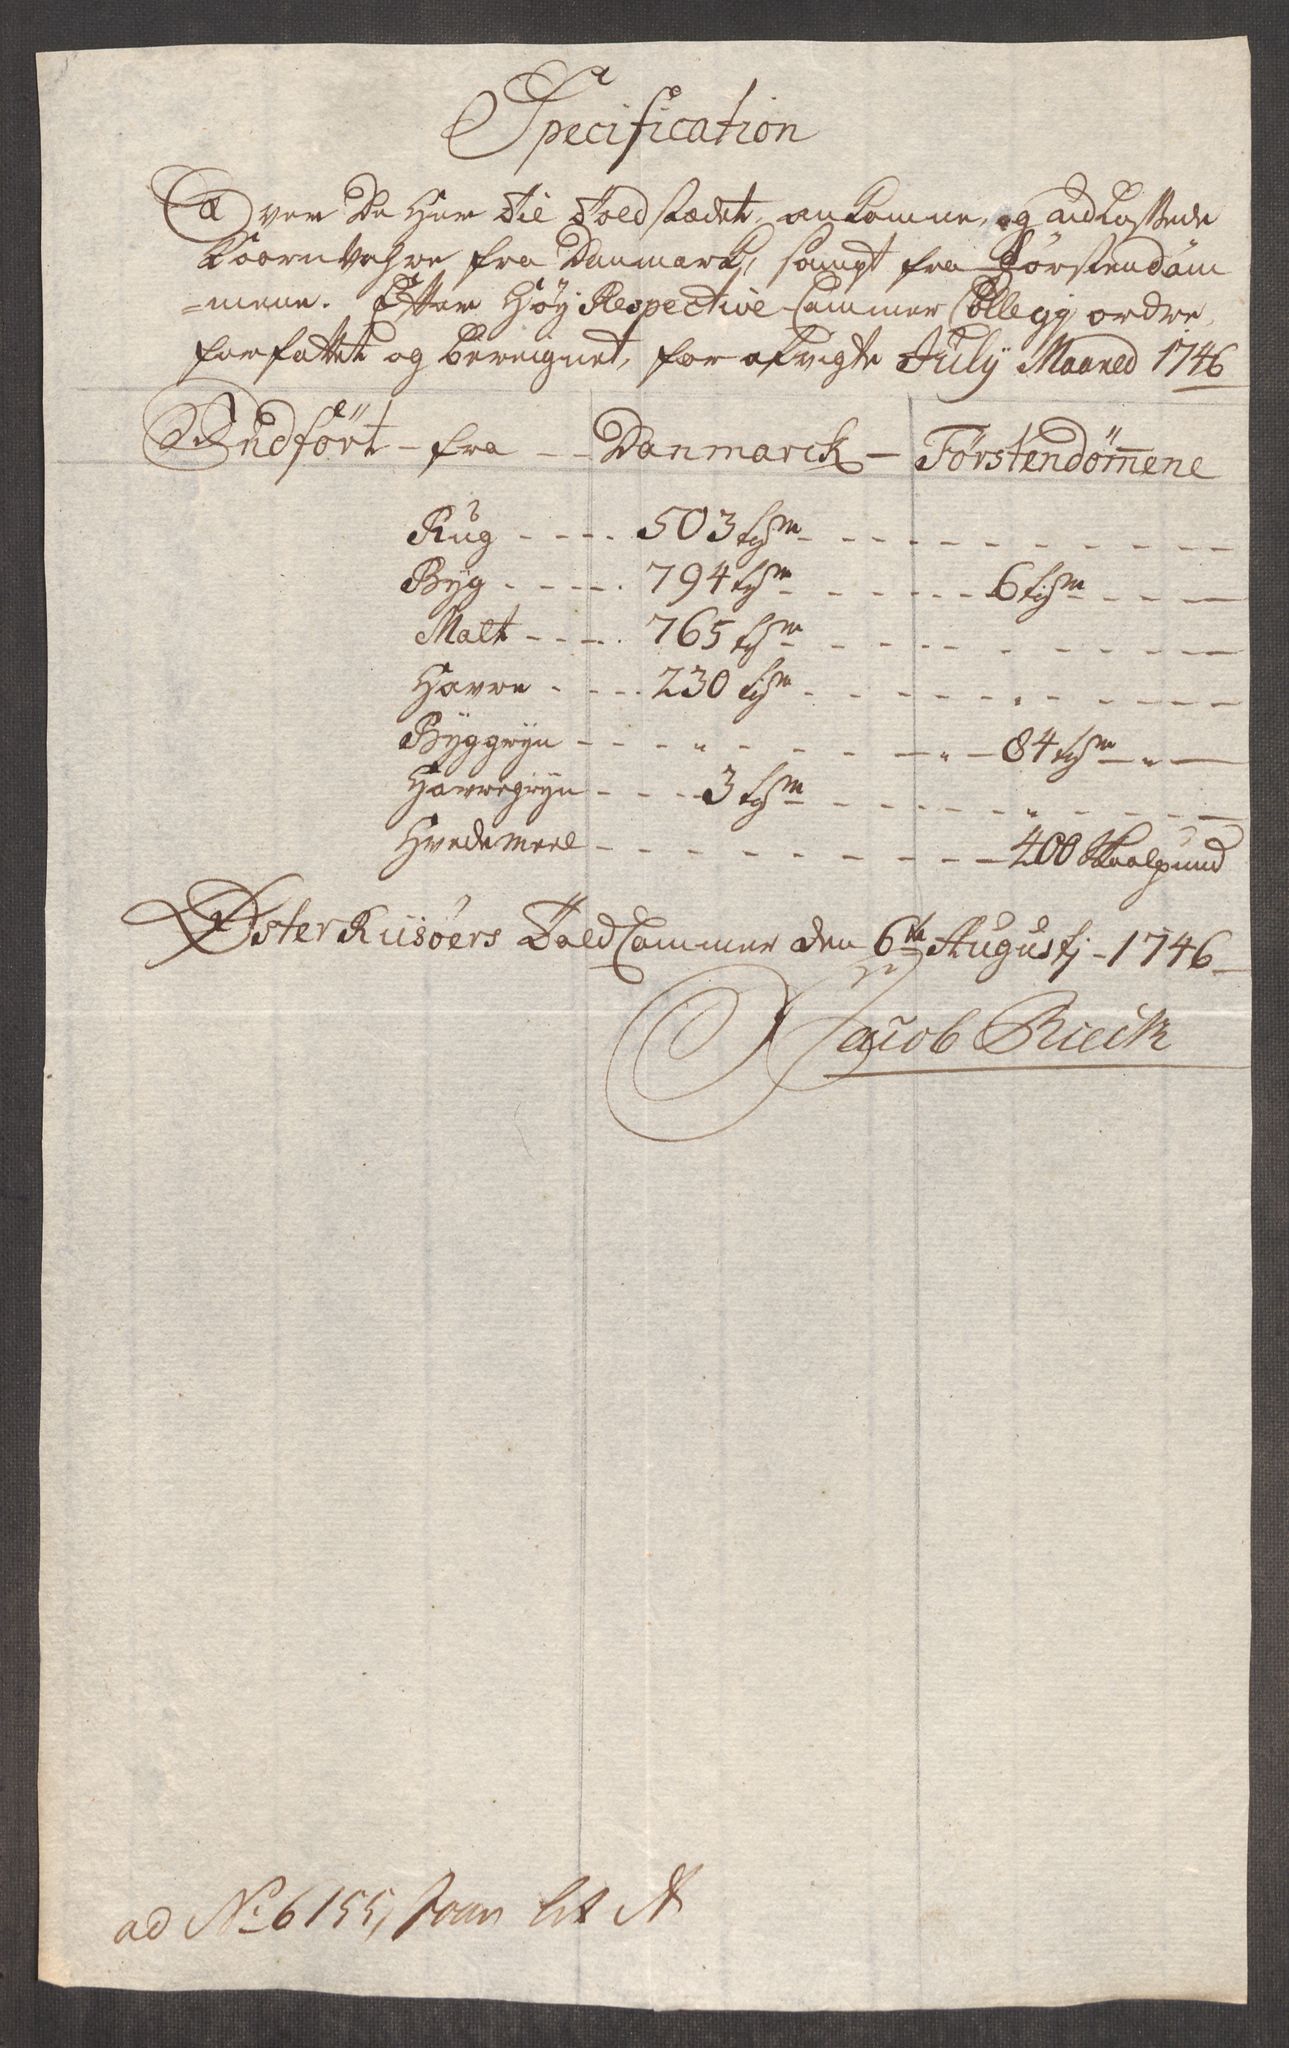 Specification
Over De Her til Toldstædet, ankomne, og udlossede
Koornvahre fra Danmark, sampt fra Förstendöm
=mene. Efter Höy Respective Cammer Collegij ordre,
forfattet og bereignet, for afvigte Julij Maaned 1746
Indfört - fra - - Danmarck - Förstendömene
Rug - - - - 503 tdr - - - - - - - - -
Byg - - - - 794 tdr - - - - - 6 tdr - - -
Malt - - - - 765 tdr - - - - - - - - -
Havre - - - - 230 tdr - - - - - - - - -
Byggryn - - - - " - - - - - " - 84 tdr - " -
Havregryn - - - - 3 tdr - - - - - " - - -
Hvedemeel - - - - - - - - - - - 400 Skaalpund
Öster Riisöers Told Cammer den 6te Augustj - 1746
Jacob Rieck
ad No 6155, Lit A